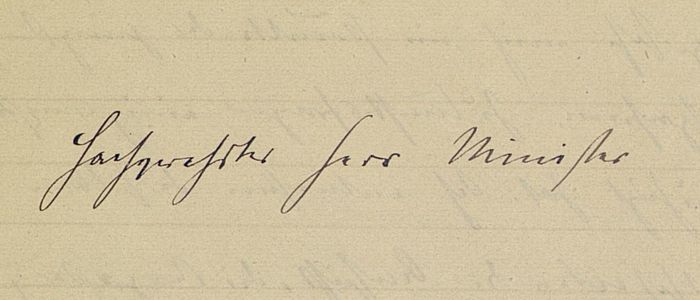 Hochgeehrter Herr Minister